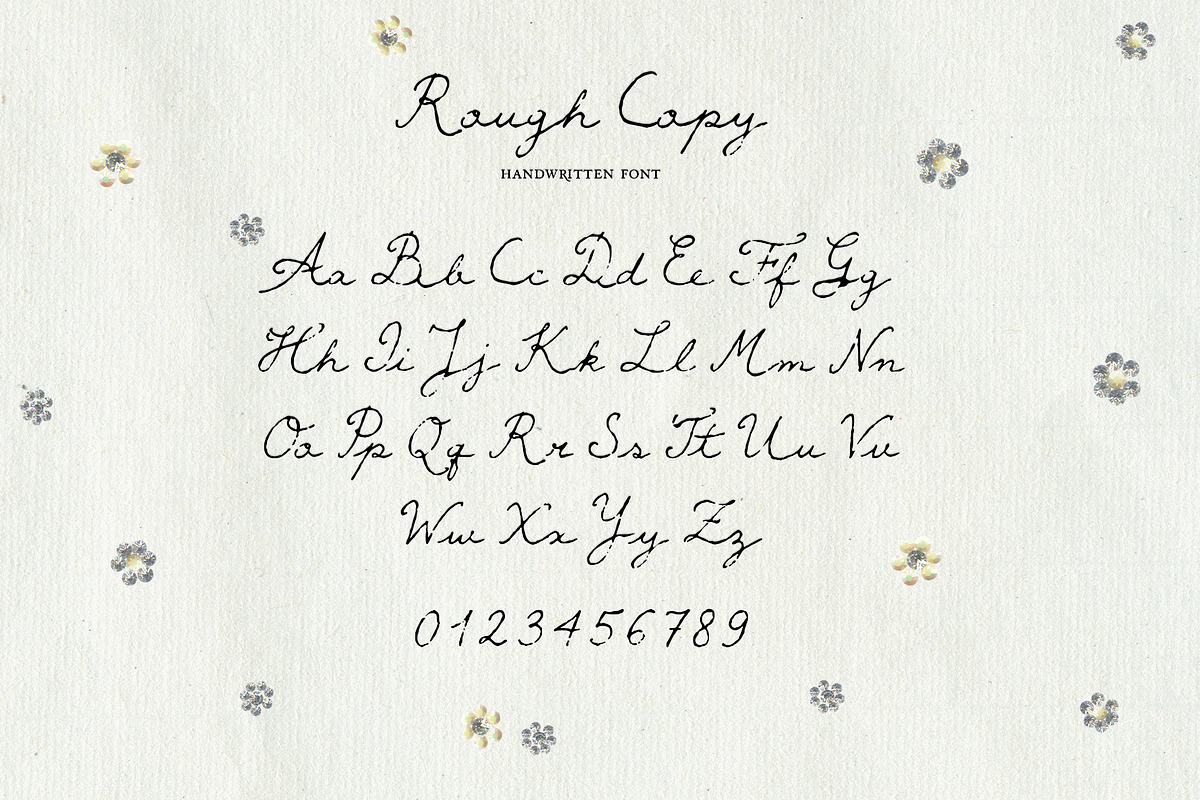 Rough Copy
HANDWRITTEN FONT
Aa Bb Cc Dd Ee Ff Gg
Hh Ii Jj Kk Ll Mm Nn
Oo Pp Qq Rr Ss Tt Uu Vv
Ww Xx Yy Zz
0123456789